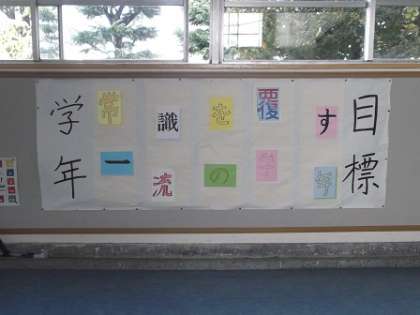 学年
目標
常識を覆す
一流の学年